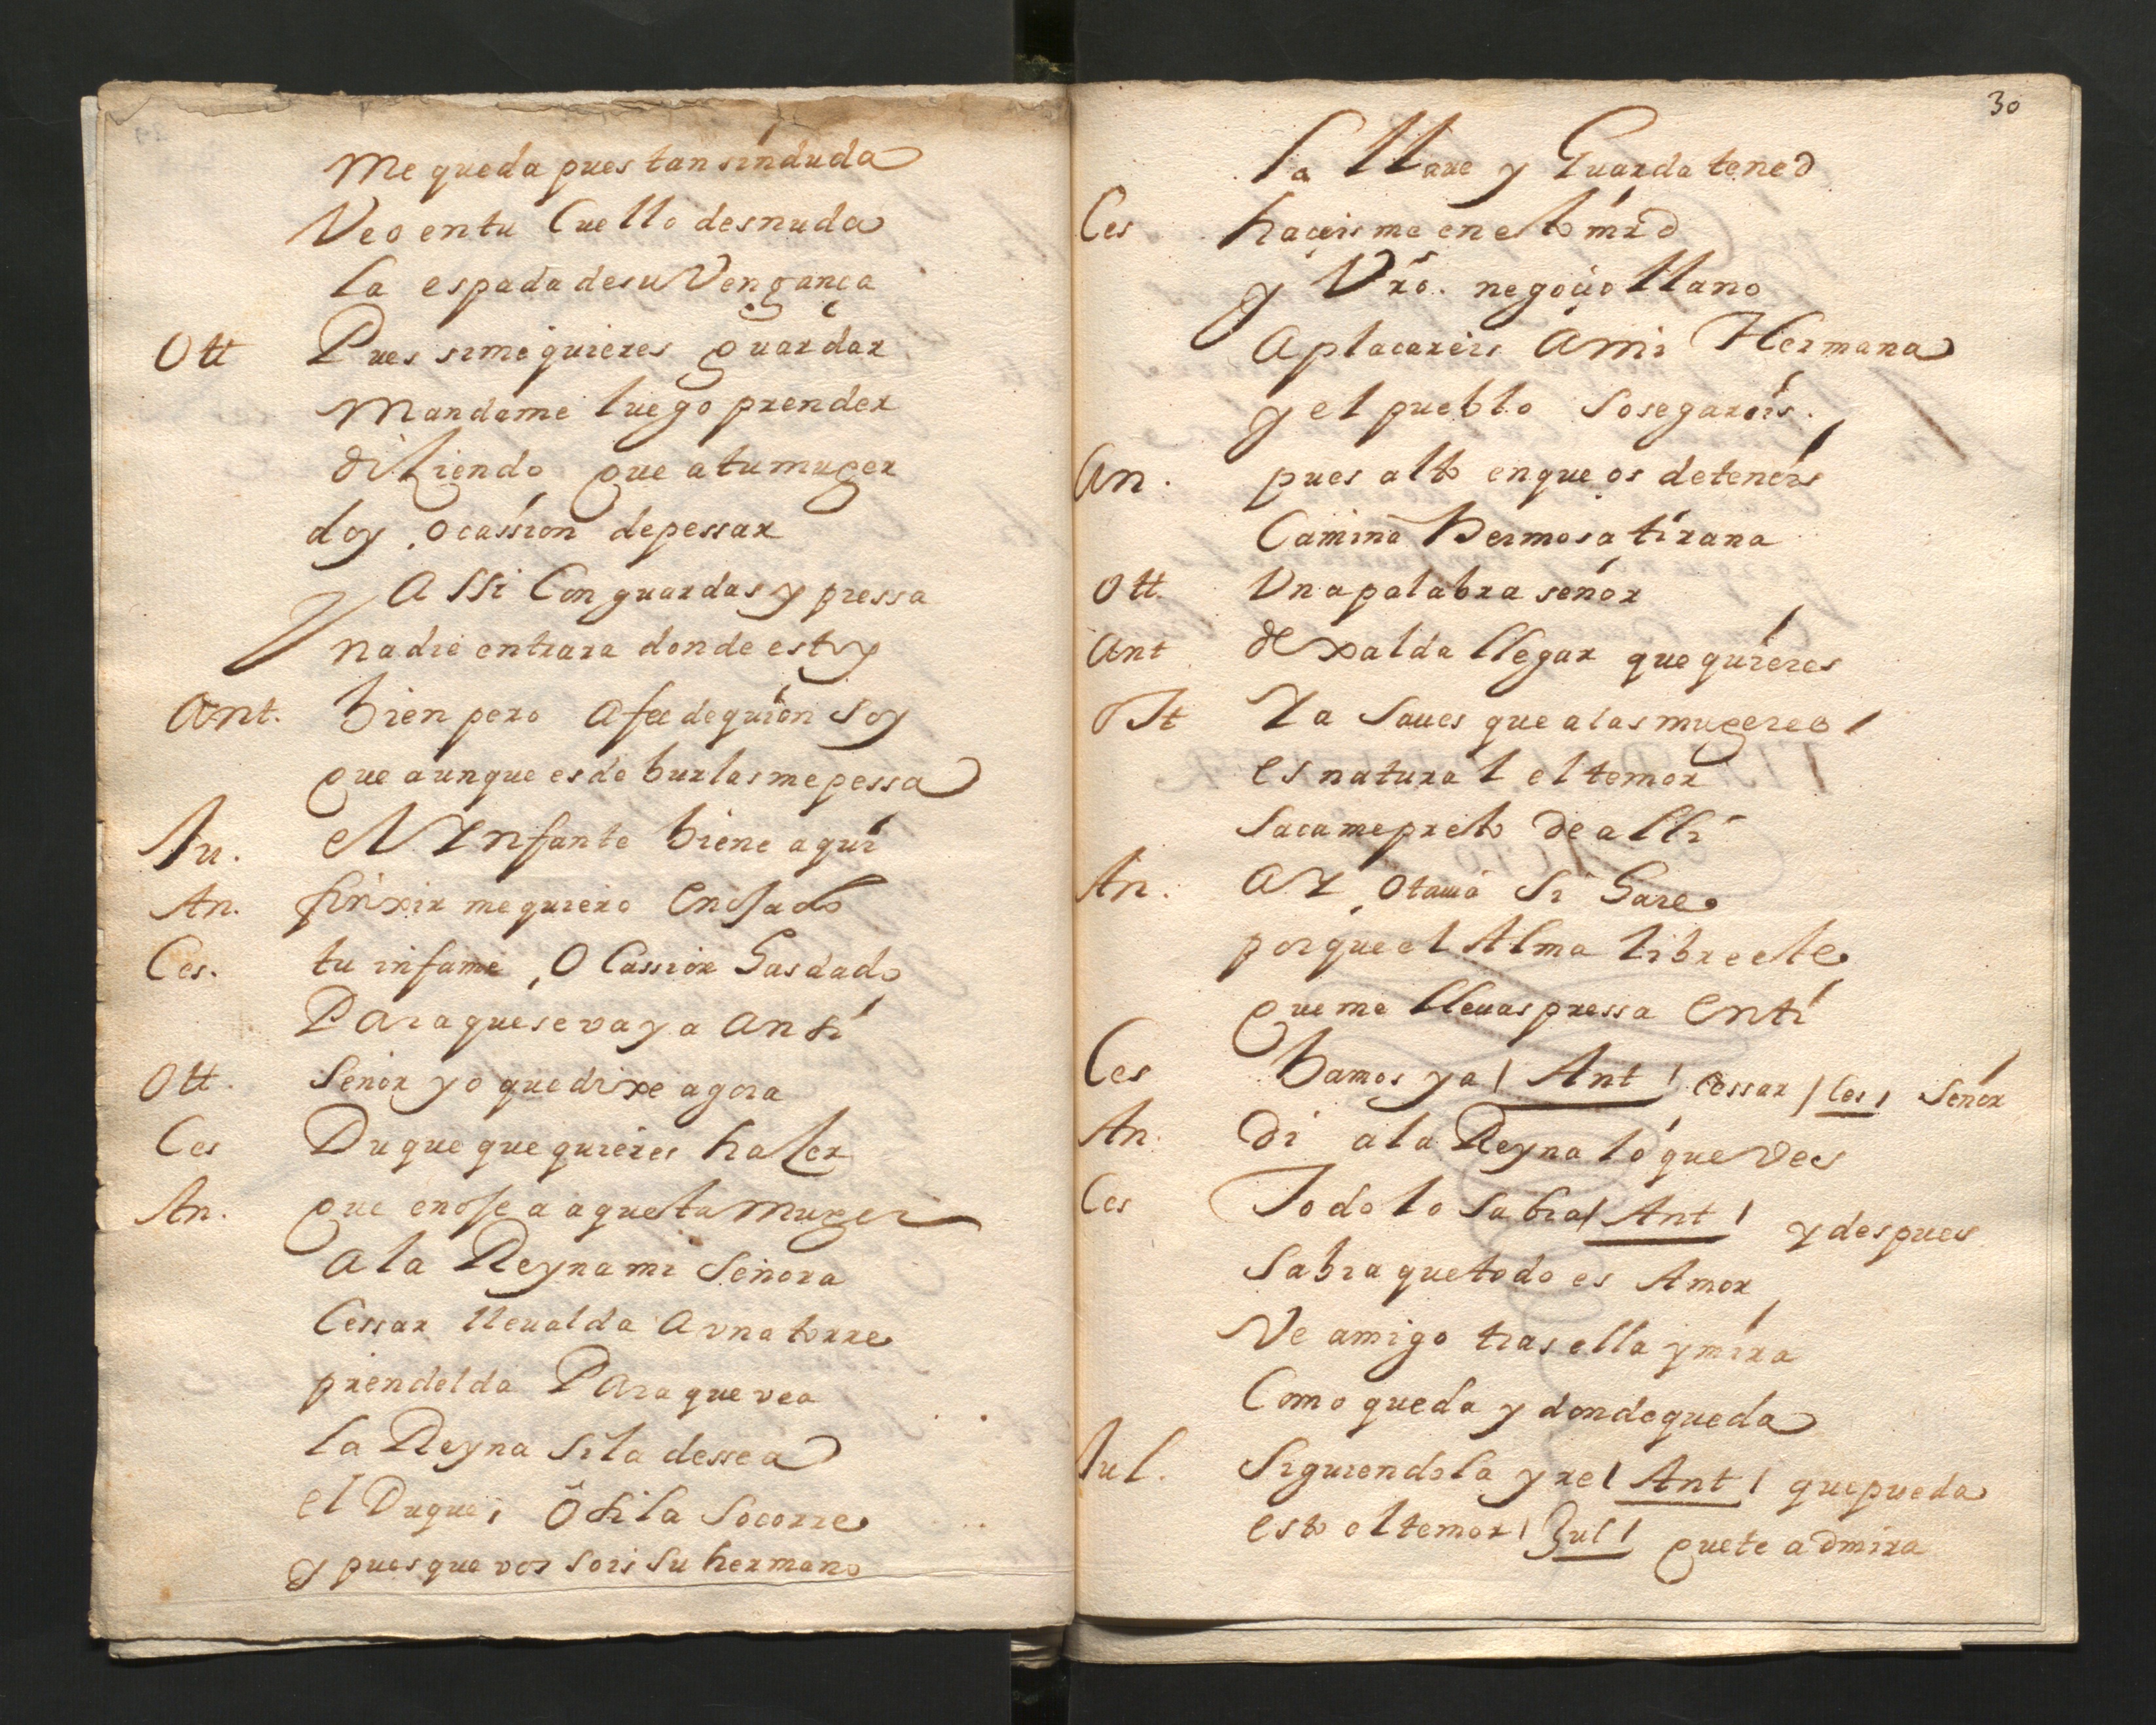 me queda pues tan sin duda
Veo en tu Cuello desnuda
la espada de su Vengança
Ott Pues si me quieres guardar
mandame luego prender
diziendo que a tu muger
doy ocassion de pessar
y Assi Con guardas y pressa
nadie entrara donde estoy
Ant. bien pero a fee de quien soy
que aunque es de burlas me pessa
Ju. el Infante biene aqui
An. finxir me quiero Enojado
Ces. tu infame, Ocassion has dado
Para que se vaya ansi
Ott. Señor yo que dixe agora
Ces Duque que quieres hazer
An. que enojea aquesta muger
a la Reyna mi Señora
Cessar lleualda a vna torre
prendelda Para que vea
la Reyna si la dessea
el Duque, o si la Socorre
y pues que vos sois su hermano
30
la llaue y Guarda tened
Ces haçeisme en esto mrd
y Vro. negoçio llano
Aplacareis a mi Hermana
y el pueblo sosegareis.
An. pues alto en que os deteneis
Camina hermosa tirana
Ott. Vna palabra señor
Ant dexalda llegar que quieres
Ott Ya saues que a las mugeres
es natural el temor
sacame presto de alli
An. Ay, Otauia si hare
porque el Alma libre este
que me lleuas pressa En ti
Ces bamos ya / Ant / Cessar / Ces / Señor
An. Di a la Reyna lo que Vees
Ces Todo lo sabra / Ant / y despues
sabra que todo es Amor
Ve amigo tras ella y mira
Como queda y donde queda
Jul. Siguiendola yre / Ant / que pueda
esto el temor / Jul / que te admira